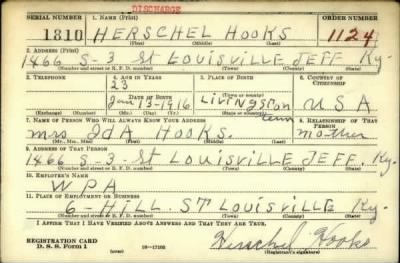 DISCHARGE
SERIAL NUMBER 1. NAME (Print) ORDER NUMBER
1810 HERSCHEL HOOKS 1124
(First) (Middle) (Last)
2. ADDRESS (Print)
1466 S-3-St LOUISVILLE JEFF Ky.
(Number and street or R. F. D. number) (Town) (County) (State)
3. TELEPHONE 4. AGE IN YEARS 5. PLACE OF BIRTH 6. COUNTRY OF CITIZENSHIP
23
LIVINGSTON
DATE OF BIRTH (Town or county)
Jan 13-1916 Tenn USA
(Exchange) (No.) (Mo.) (Day) (Yr.) (State or country)
7. NAME OF PERSON WHO WILL ALWAYS KNOW YOUR ADDRESS 8. RELATIONSHIP OF THAT PERSON
mrs IDA HOOKS. mother
(Mr., Mrs., Miss) (First) (Middle) (Last)
9. ADDRESS OF THAT PERSON
1466 S-3-St LOUISVILLE JEFF. Ky.
(Number and street or R. F. D. number) (Town) (County) (State)
10. EMPLOYER'S NAME
WPA
11. PLACE OF EMPLOYMENT OR BUSINESS
6-HILL. ST LOUISVILLE Ky.
(Number and street or R. F. D. number) (Town) (County) (State)
I AFFIRM THAT I HAVE VERIFIED ABOVE ANSWERS AND THAT THEY ARE TRUE.
REGISTRATION CARD
D. S. S. Form 1 16-17105 Herschel Hooks
(Registrant's signature)